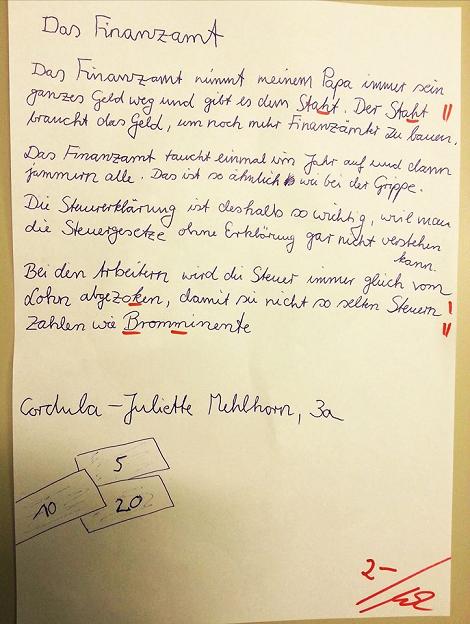 Das Finanzamt
Das Finanzamt nimmt meinem Papa immer sein
ganzes Geld weg und gibt es dem Staht. Der Staht
braucht das Geld, um noch mehr Finanzämter zu bauen.
Das Finanzamt taucht einmal im Jahr auf und dann
jammern alle. Das ist so ähnlich wie bei der Grippe.
Die Steuererklärung ist deshalb so wichtig, weil man
die Steuergesetze ohne Erklärung gar nicht verstehen
kann.
Bei den Arbeitern wird die Steuer immer gleich vom
Lohn abgezoken, damit sie nicht so selten Steuern
zahlen wie Bromminente
Cordula-Juliette Mehlhorn, 3a
5
10
20
2-